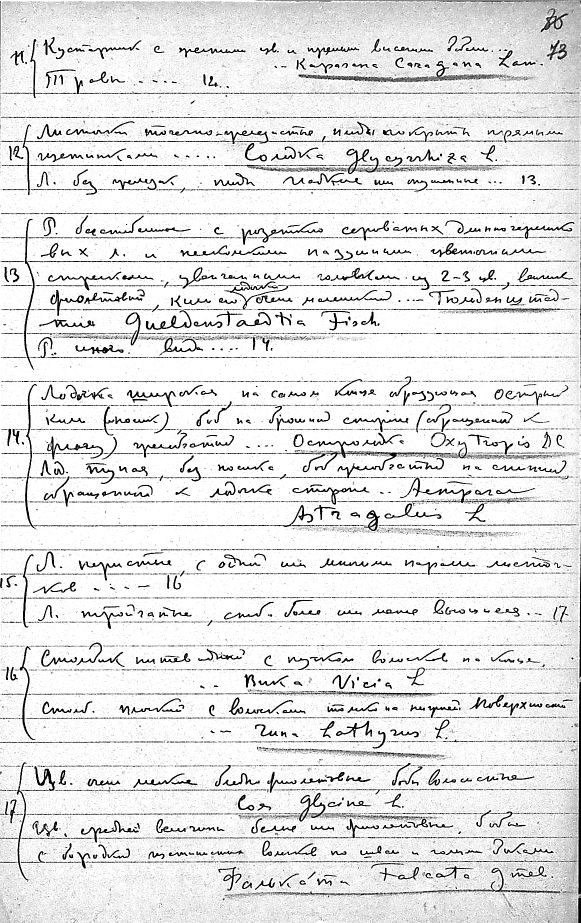 73
11. Кустарник с желтыми цв. и прямыми висячими бобами...
... Карагана Caragana Lam.
Травы .... 12.
12 Листочки точечно-железистые, плоды покрыты прямыми
щетинками ..... Солодка Glycyrrhiza L.
Л. без железок, плоды гладкие или опушенные ... 13.
13 Р. бесстебельное с розеткою сероватых длинночерешко
вых л. и несколькими пазушными цветочными
стрелками, увенчанными головками из 2-3 цв., венчик
фиолетовый, киль ею лодочка очень маленький .... Гюльденштед-
тия Gueldenstaedtia Fisch.
Р. иного вида .... 14.
14. Лодочка широкая, на самом конце образующая острый
киль (носик), боб на брюшной стороне (обращенной к
флагу) желобчатый .... Остролодка Oxytropis DC
Лод. тупая, без носика, боб желобчатый на спинной,
обращенной к лодочке стороне .. Астрагал
Astragalus L
15. Л. перистые, с одной или многими парами листоч-
ков .... 16
Л. тройчатые, стебль более или менее вьющиеся .. 17
16 Столбик нитевидный с пучком волосков на конце,
.. Вика Vicia L
Столб. плоский с волосками только на нижней поверхности
... Чина Lathyrus L.
17 Цв. очень мелкие бледно фиолетовые, бобы волосистые
Соя Glycine L.
Цв. средней величины белые или фиолетовые, бобы
с бородкой щетинистых волосков по швам и голыми боками
Фальката Falcata Gmel.